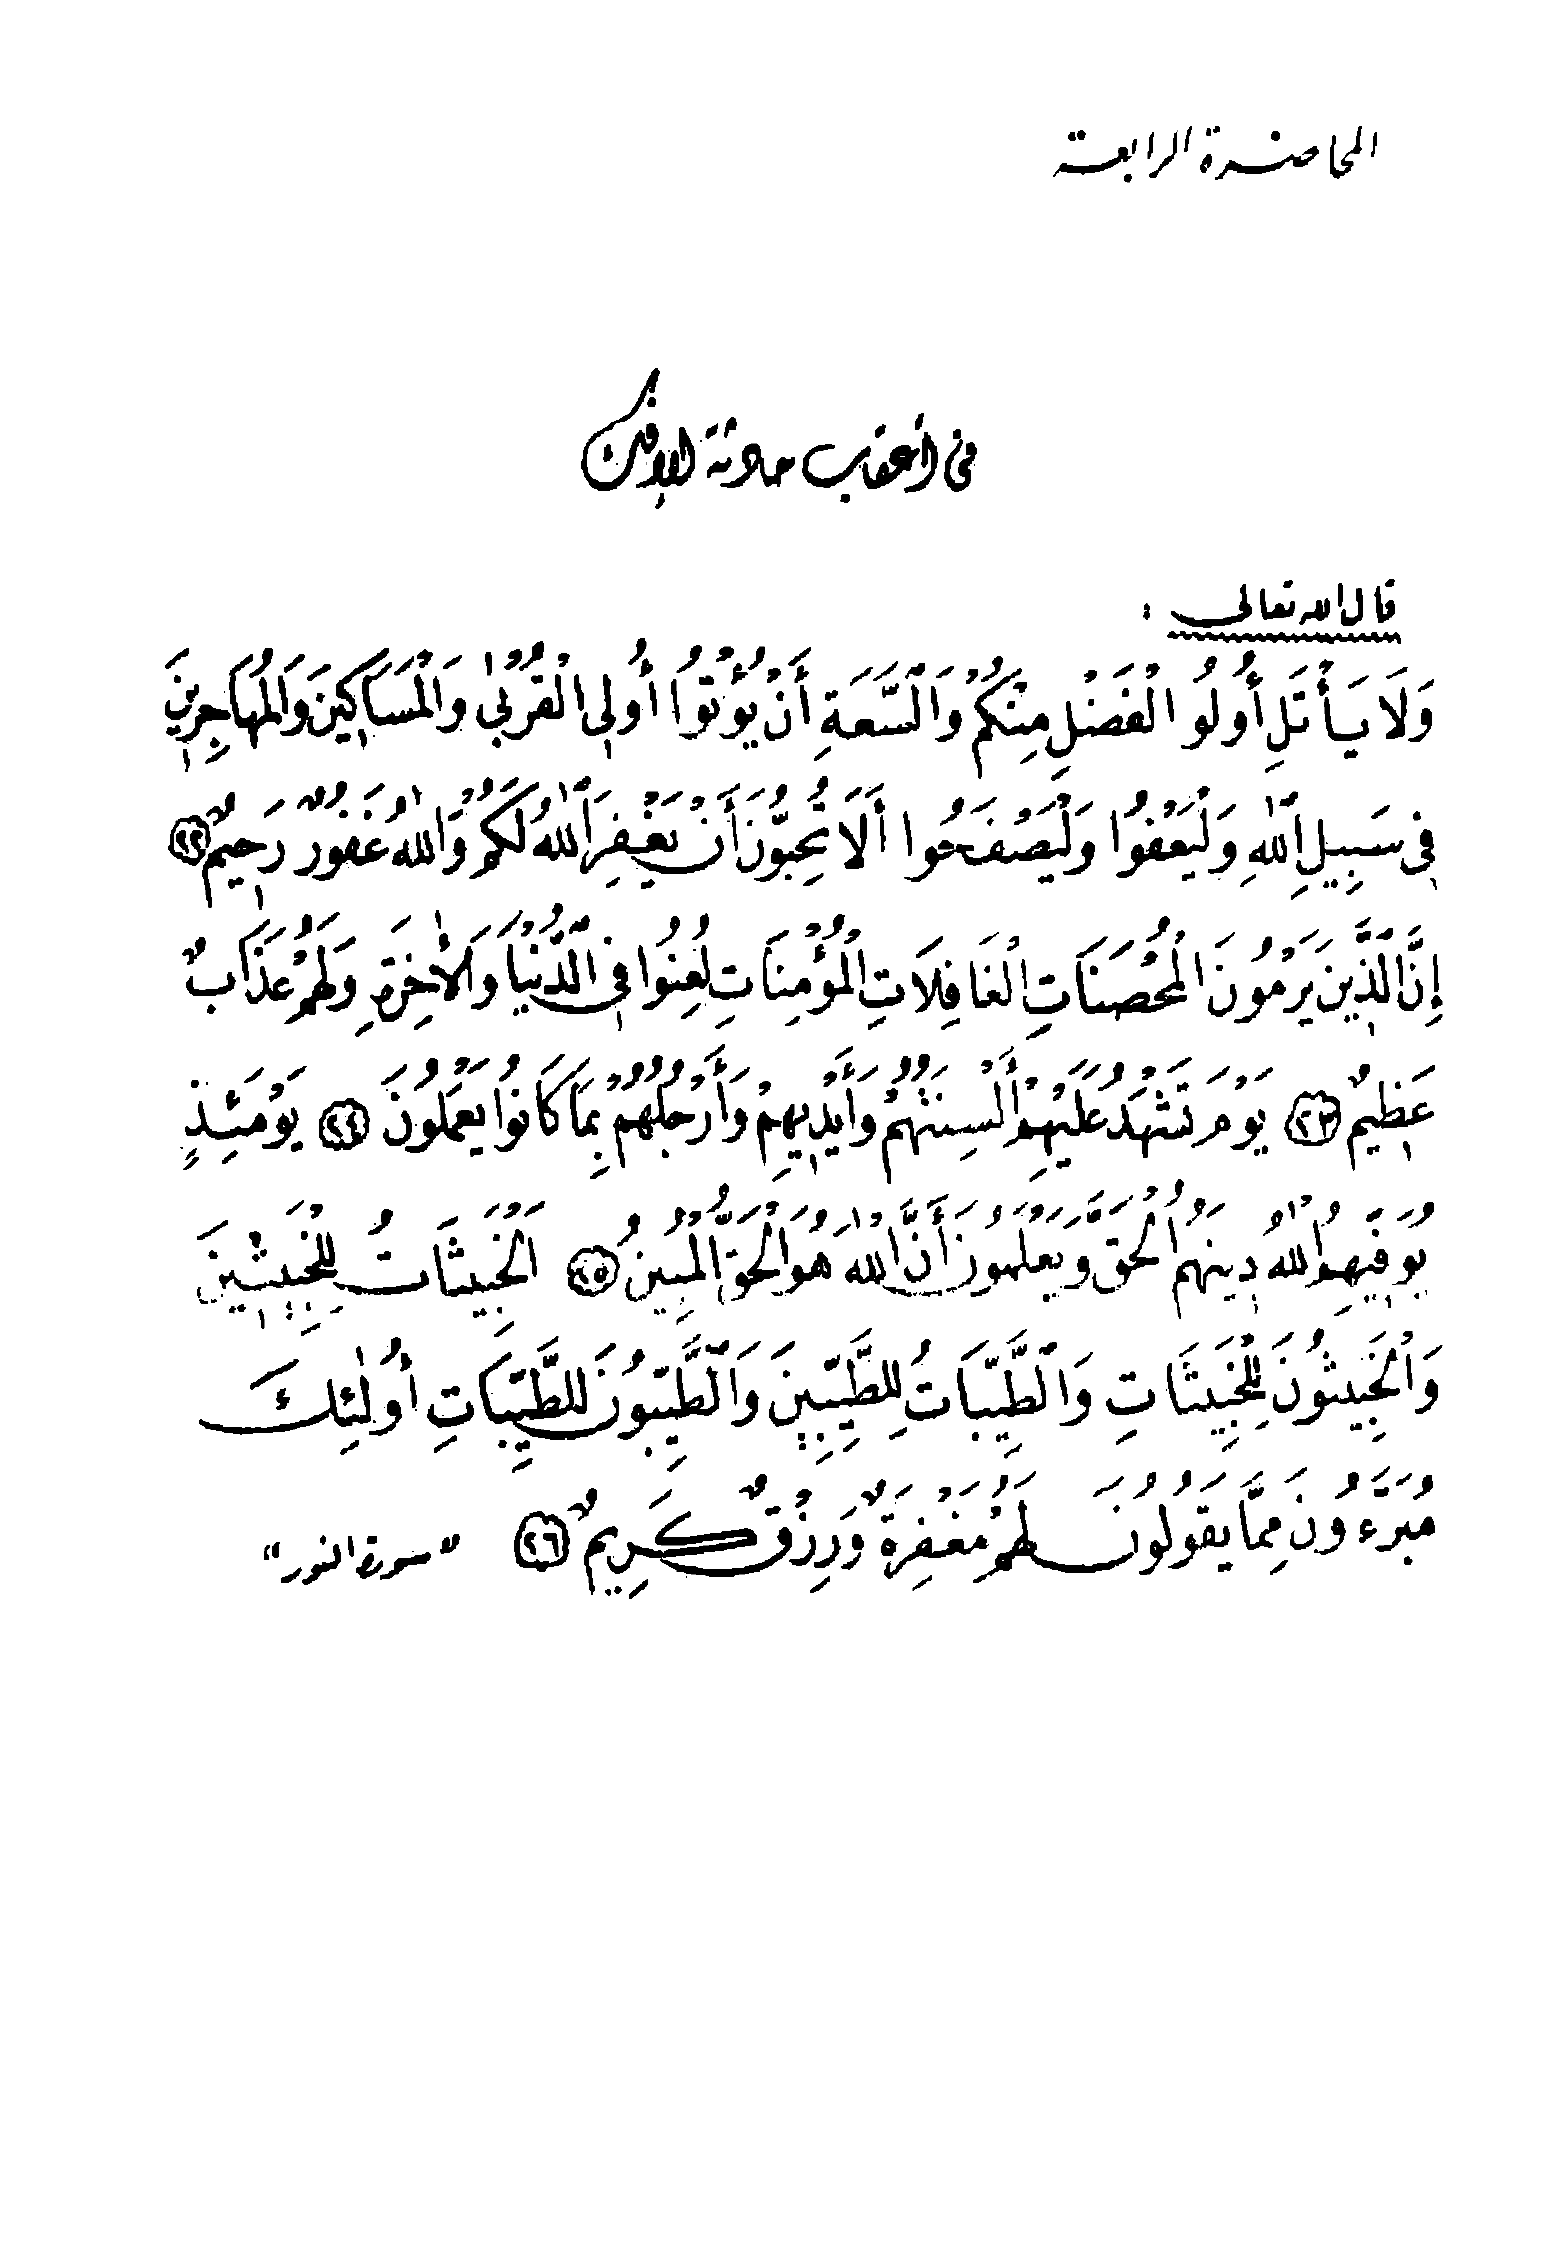 المحاضرة الرابعة
في أعقاب حادثة الإفك
قال الله تعالى :
وَلَا يَأْتَلِ أُولُو الْفَضْلِ مِنْكُمْ وَالسَّعَةِ أَنْ يُؤْتُوا أُولِي الْقُرْبَىٰ وَالْمَسَاكِينَ وَالْمُهَاجِرِينَ
فِي سَبِيلِ اللَّهِ وَلْيَعْفُوا وَلْيَصْفَحُوا أَلَا تُحِبُّونَ أَنْ يَغْفِرَ اللَّهُ لَكُمْ وَاللَّهُ غَفُورٌ رَحِيمٌ ٢٢
إِنَّ الَّذِينَ يَرْمُونَ الْمُحْصَنَاتِ الْغَافِلَاتِ الْمُؤْمِنَاتِ لُعِنُوا فِي الدُّنْيَا وَالْآخِرَةِ وَلَهُمْ عَذَابٌ
عَظِيمٌ ٢٣ يَوْمَ تَشْهَدُ عَلَيْهِمْ أَلْسِنَتُهُمْ وَأَيْدِيهِمْ وَأَرْجُلُهُمْ بِمَا كَانُوا يَعْمَلُونَ ٢٤ يَوْمَئِذٍ
يُوَفِّيهِمُ اللَّهُ دِينَهُمُ الْحَقَّ وَيَعْلَمُونَ أَنَّ اللَّهَ هُوَ الْحَقُّ الْمُبِينُ ٢٥ الْخَبِيثَاتُ لِلْخَبِيثِينَ
وَالْخَبِيثُونَ لِلْخَبِيثَاتِ وَالطَّيِّبَاتُ لِلطَّيِّبِينَ وَالطَّيِّبُونَ لِلطَّيِّبَاتِ أُولَٰئِكَ
مُبَرَّءُونَ مِمَّا يَقُولُونَ لَهُمْ مَغْفِرَةٌ وَرِزْقٌ كَرِيمٌ ٢٦ "سورة النور"